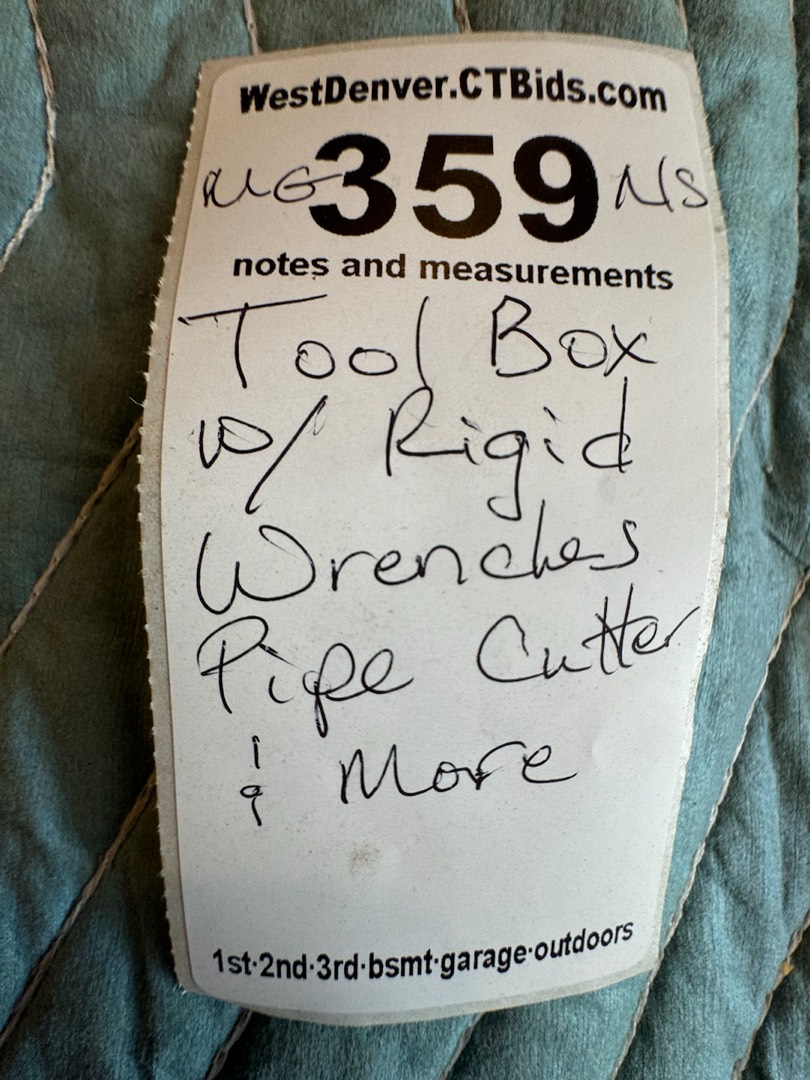 WestDenver.CTBids.com
MG 359 NS
notes and measurements
Tool Box
w/ Rigid
Wrenches
Pipe Cutter
& More
1st·2nd·3rd·bsmt·garage·outdoors